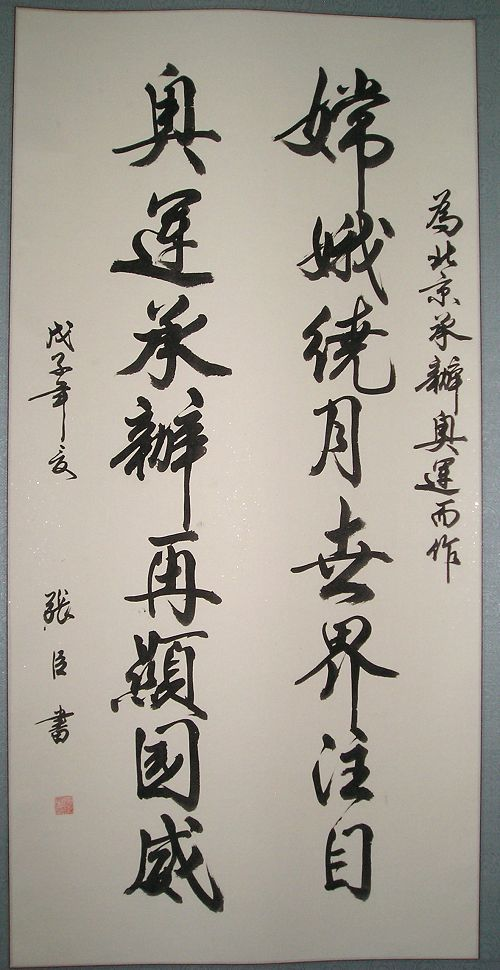 為北京承辦奧運而作
嫦娥绕月世界注目
奧運承辦再顯國威
戊子年夏
張臣書